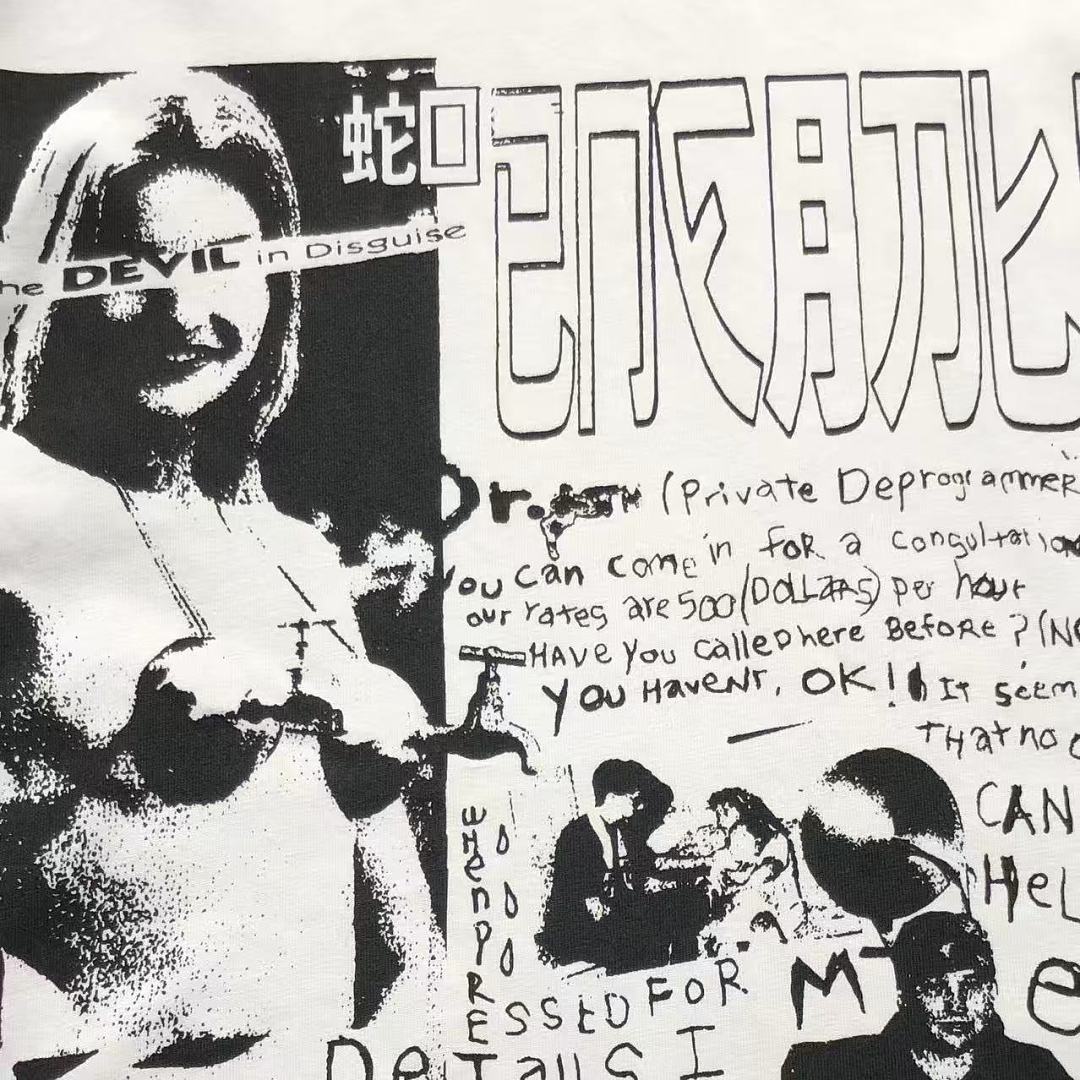 蛇口
he DEVIL in Disguise
Dr. (Private Deprogrammer
You can come in for a consultation
our rates are 500 (DOLLARS) per hour
HAVE you called here Before? (No
you HaveNt, OK! It seem
THat no
CAN
HeL
WHen PRESSED FOR
M e
DeTailS I